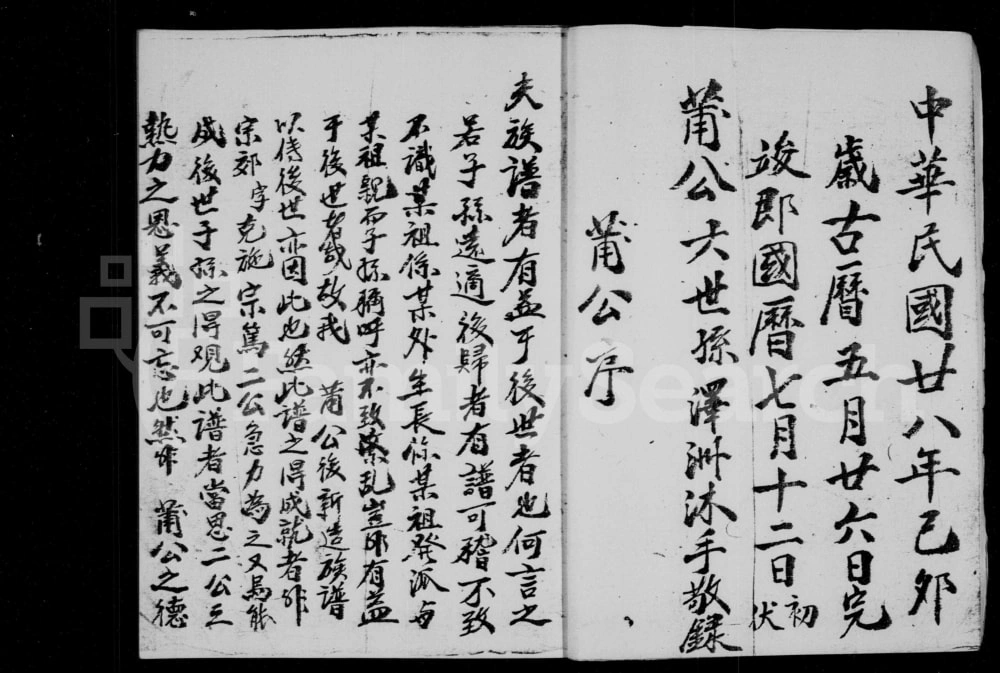 中華民國廿八年己卯
歲古曆五月廿六日完
竣即國曆七月十二日初伏
莆公六世孫澤洲沐手敬錄
莆公序
夫族譜者有益于後世者也何言之
若子孫遠適後歸者有譜可稽不致
不識某祖係某外生長係某祖發派與
某祖親而子孫稱呼亦不致紊乱豈非有益
于後世者哉故我 莆公後新造族譜
以傳後世亦因此也然此譜之得成就者非
宗郊字克施宗篤二公急力為之又焉能
成後世子孫之得观此譜者當思二公之
熱力之恩義不可忘也然非 莆公之德
FamilySearch